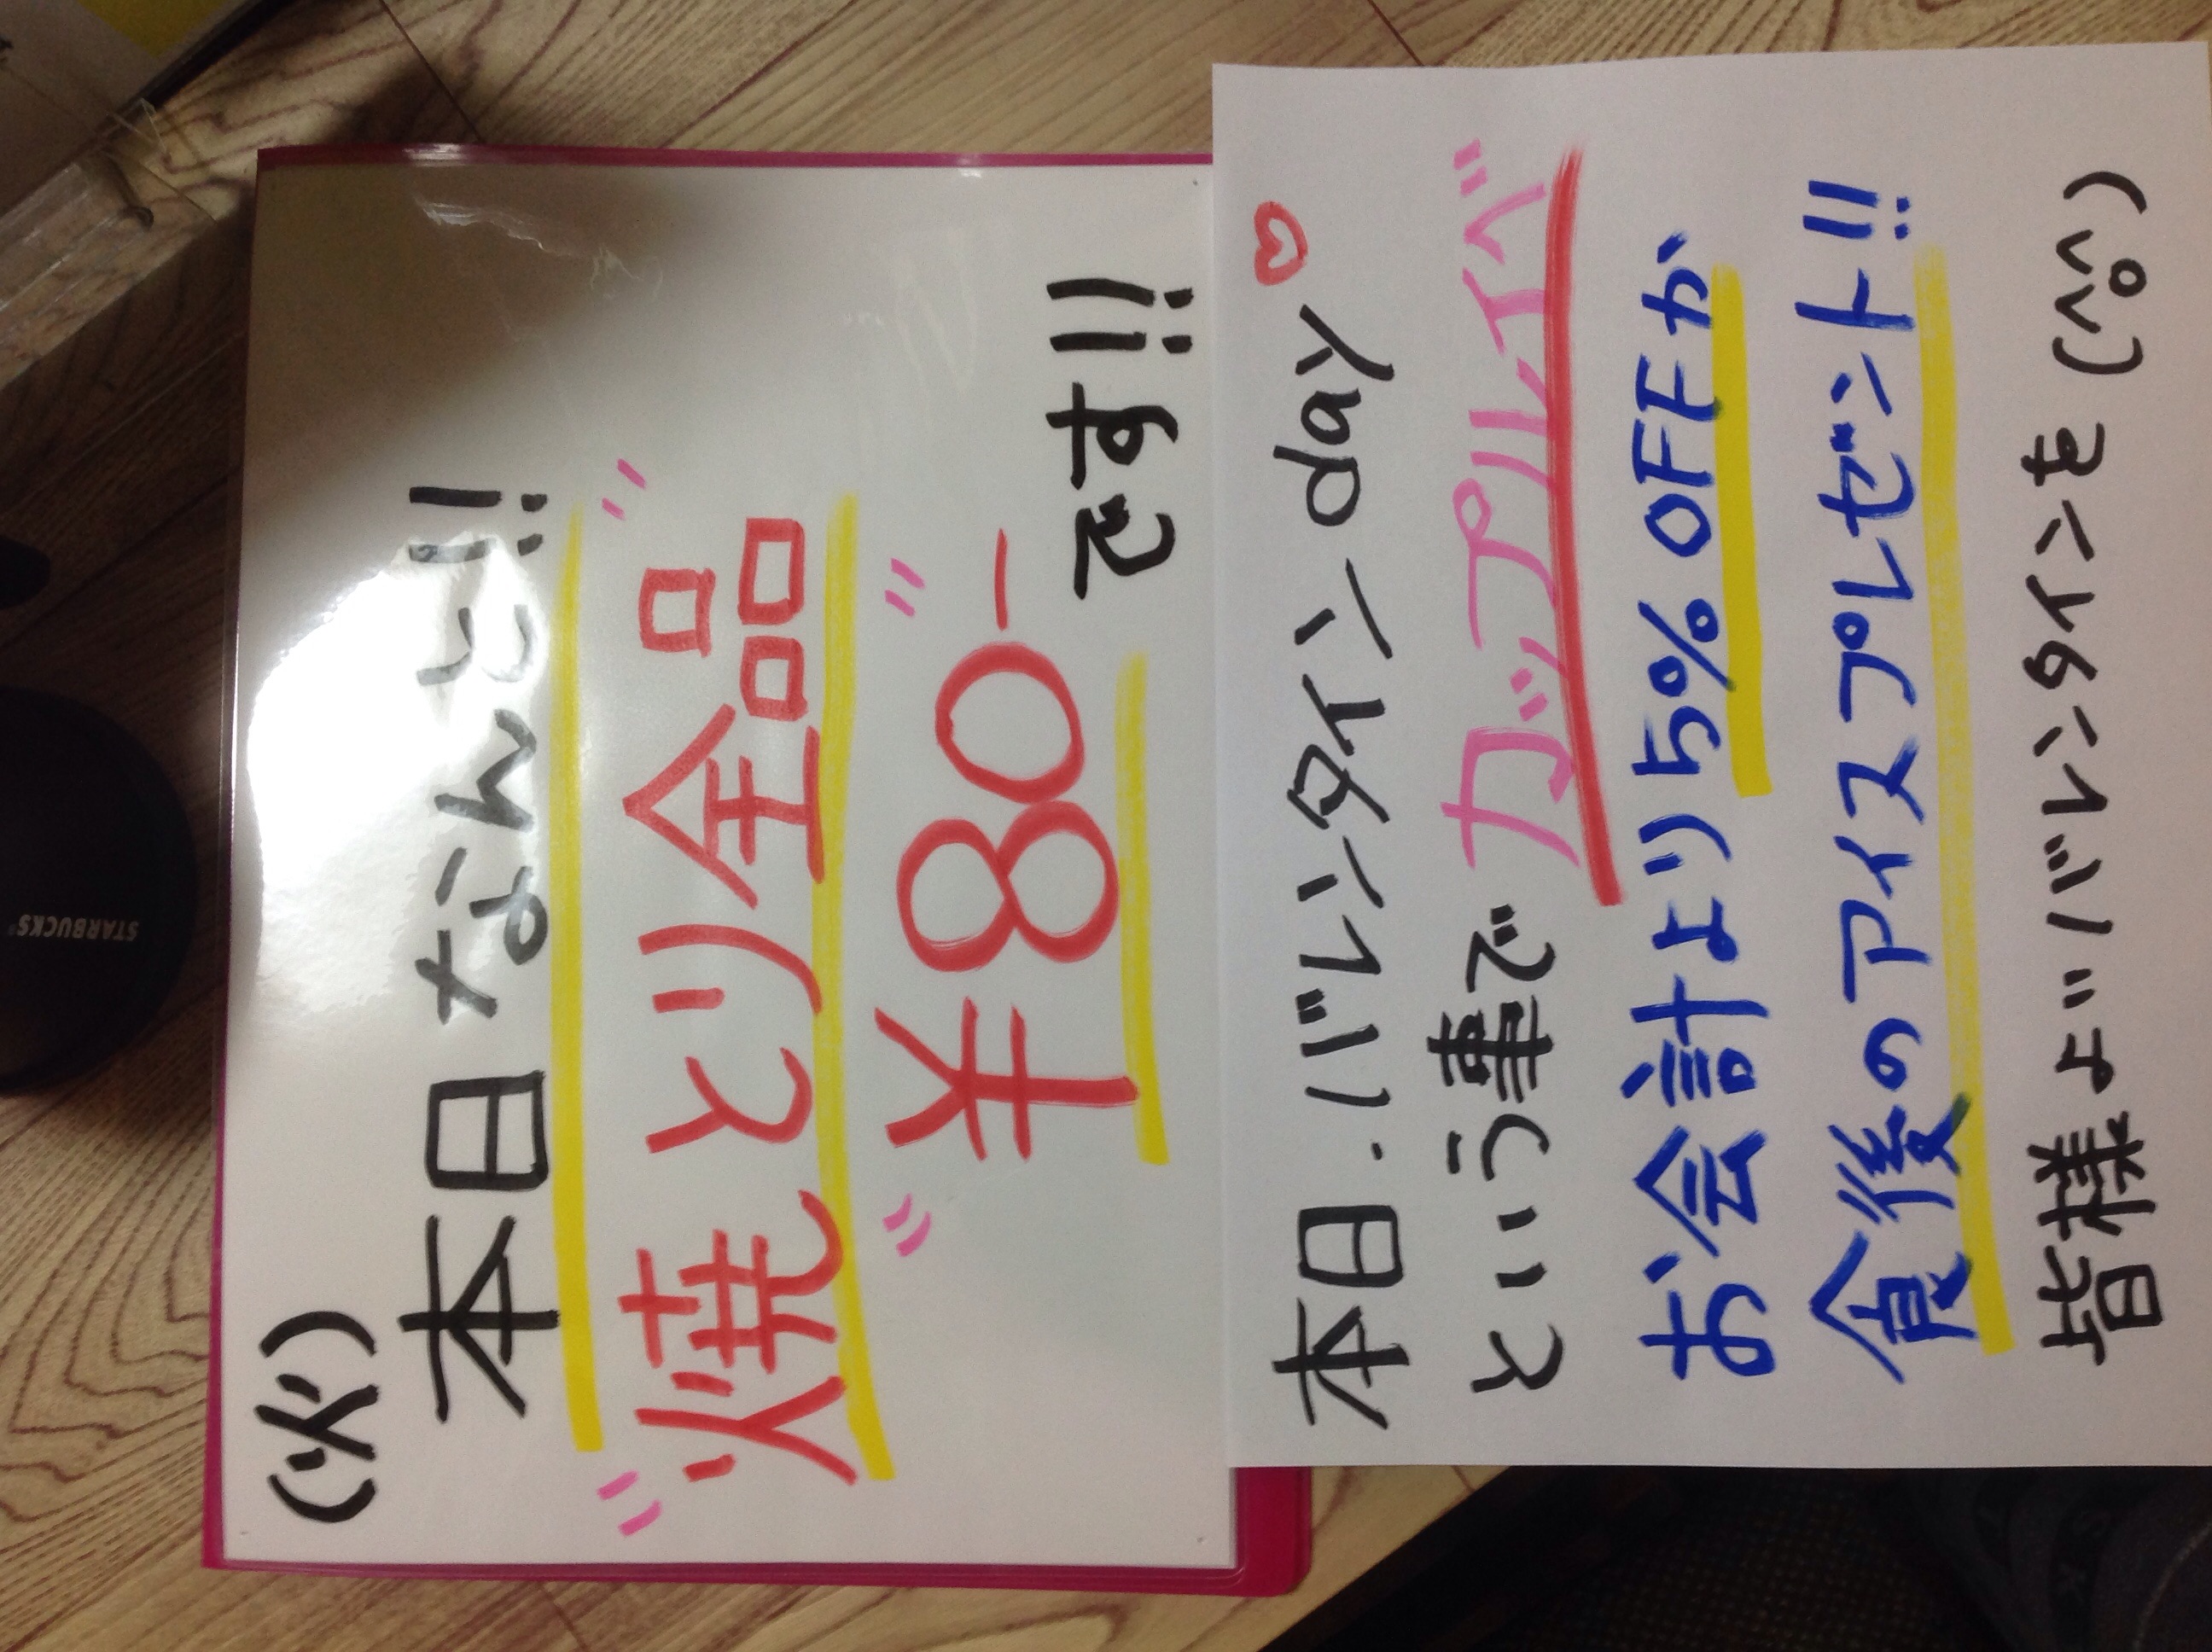 (火)
本日なんと!!
"焼とり全品"
"¥80-"
です!!
本日・バレンタインday♡
という事で カップルイベ"
お会計より5%OFFか
食後のアイスプレゼント!!
(ぷん)
STARBUCKS